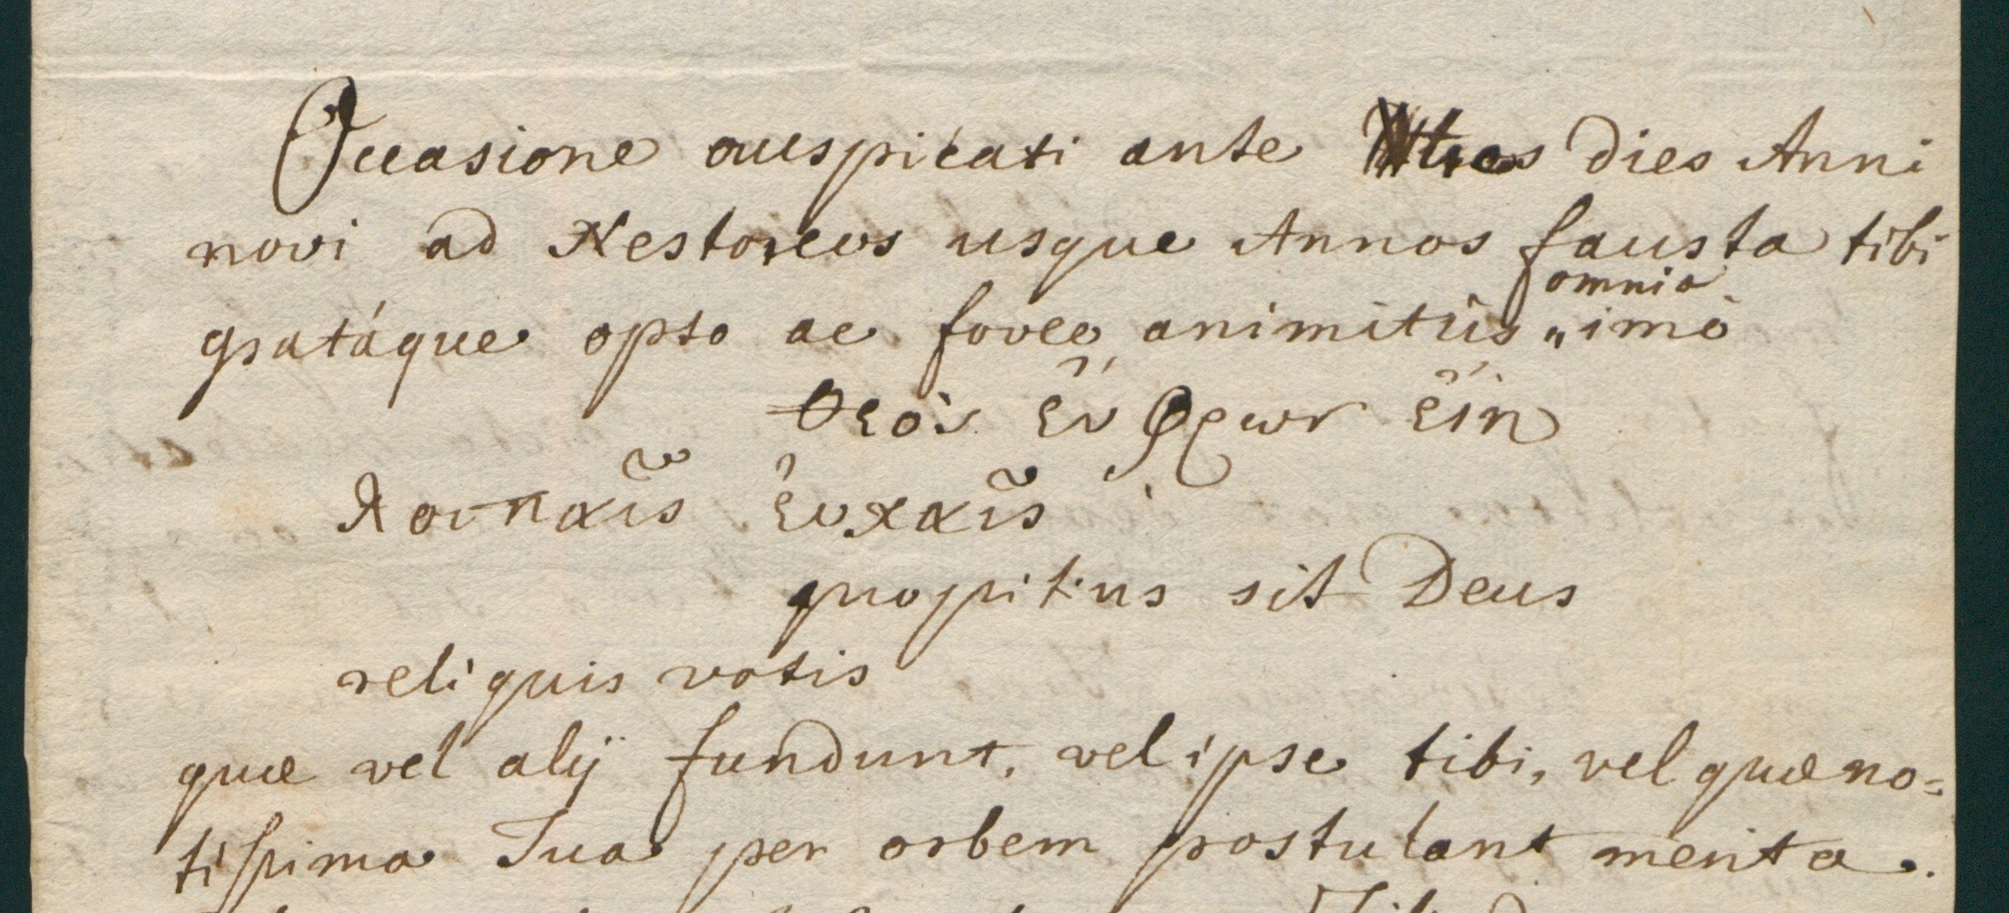 Occasione auspicati ante tres dies Anni
novi ad Nestoreos usque Annos fausta tibi
omnia
gratáque opto ac foveo animitùs „ imò
Θεὸς ἐυφρων ἐίη
λοιπαῖς ἐυχαῖς
propitius sit Deus
reliquis votis
quæ vel alij fundunt, vel ipse tibi, vel quæ no=
tissima Tua per orbem postulant merita.